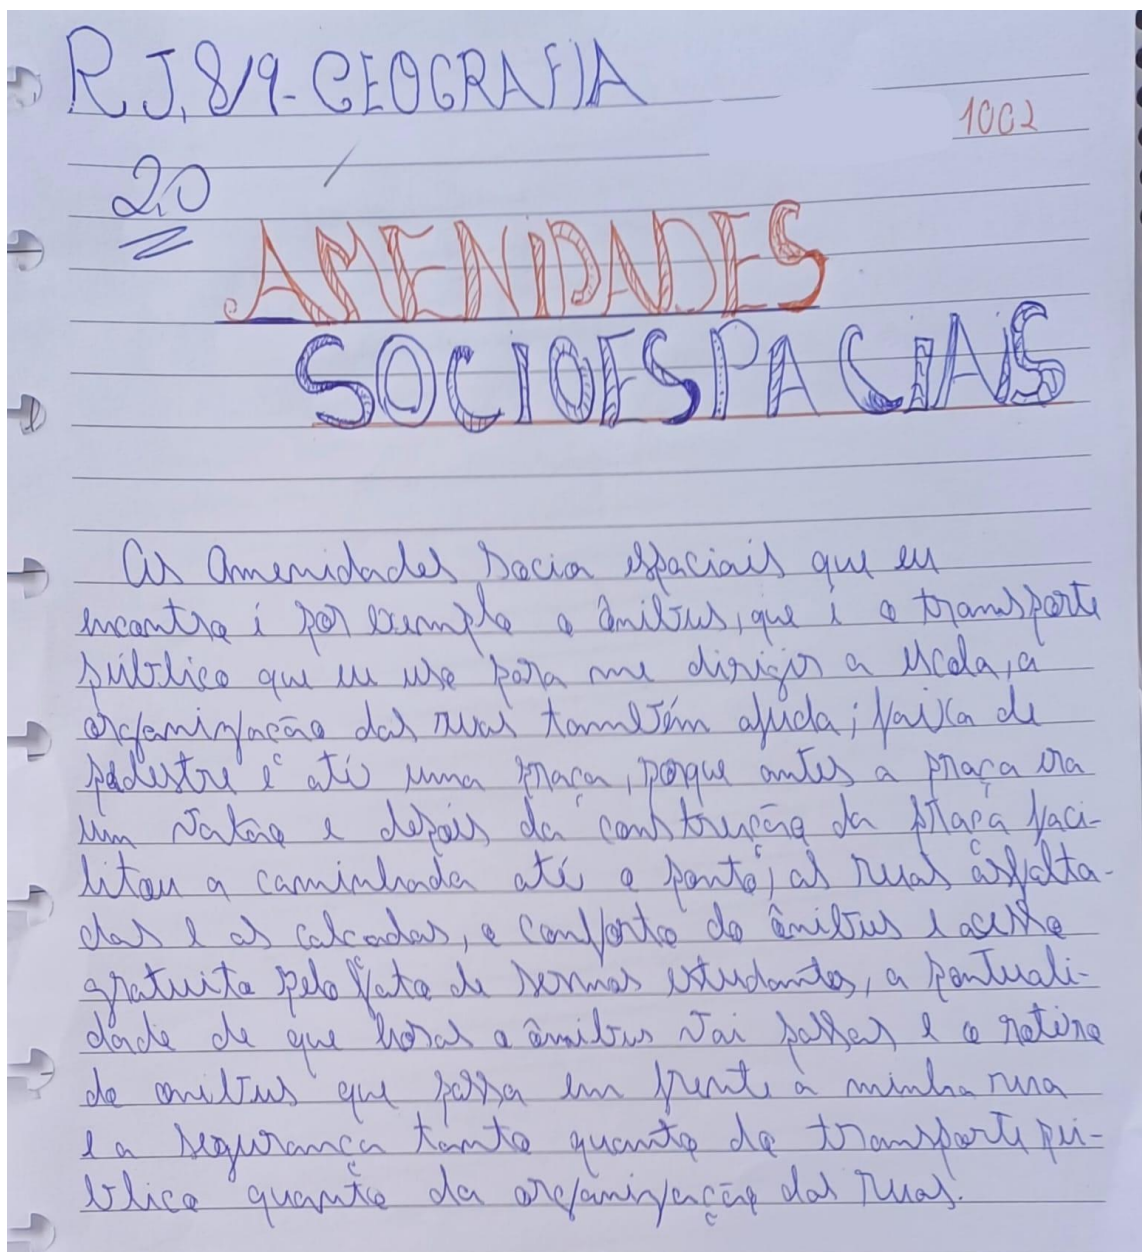 R J, 8/9 - GEOGRAFIA
1002
2,0
AMENIDADES
SOCIOESPACIAIS
As Amenidades socio espaciais que eu
encontro é por exemplo o ônibus, que é o transporte
público que eu uso para me dirigir a escola, a
organização das ruas também ajuda; faixa de
pedestre e até uma praça, porque antes a praça era
um valão e depois da construção da praça faci-
litou a caminhada até o ponto; as ruas asfalta-
das e as calçadas, o conforto do ônibus e acesso
gratuito pelo fato de sermos estudantes, a pontuali-
dade de que horas o ônibus vai passar e a rotina
do onibus que passa em frente a minha rua
e a segurança tanto quanto do transporte pú-
blico quanto da organização das ruas.